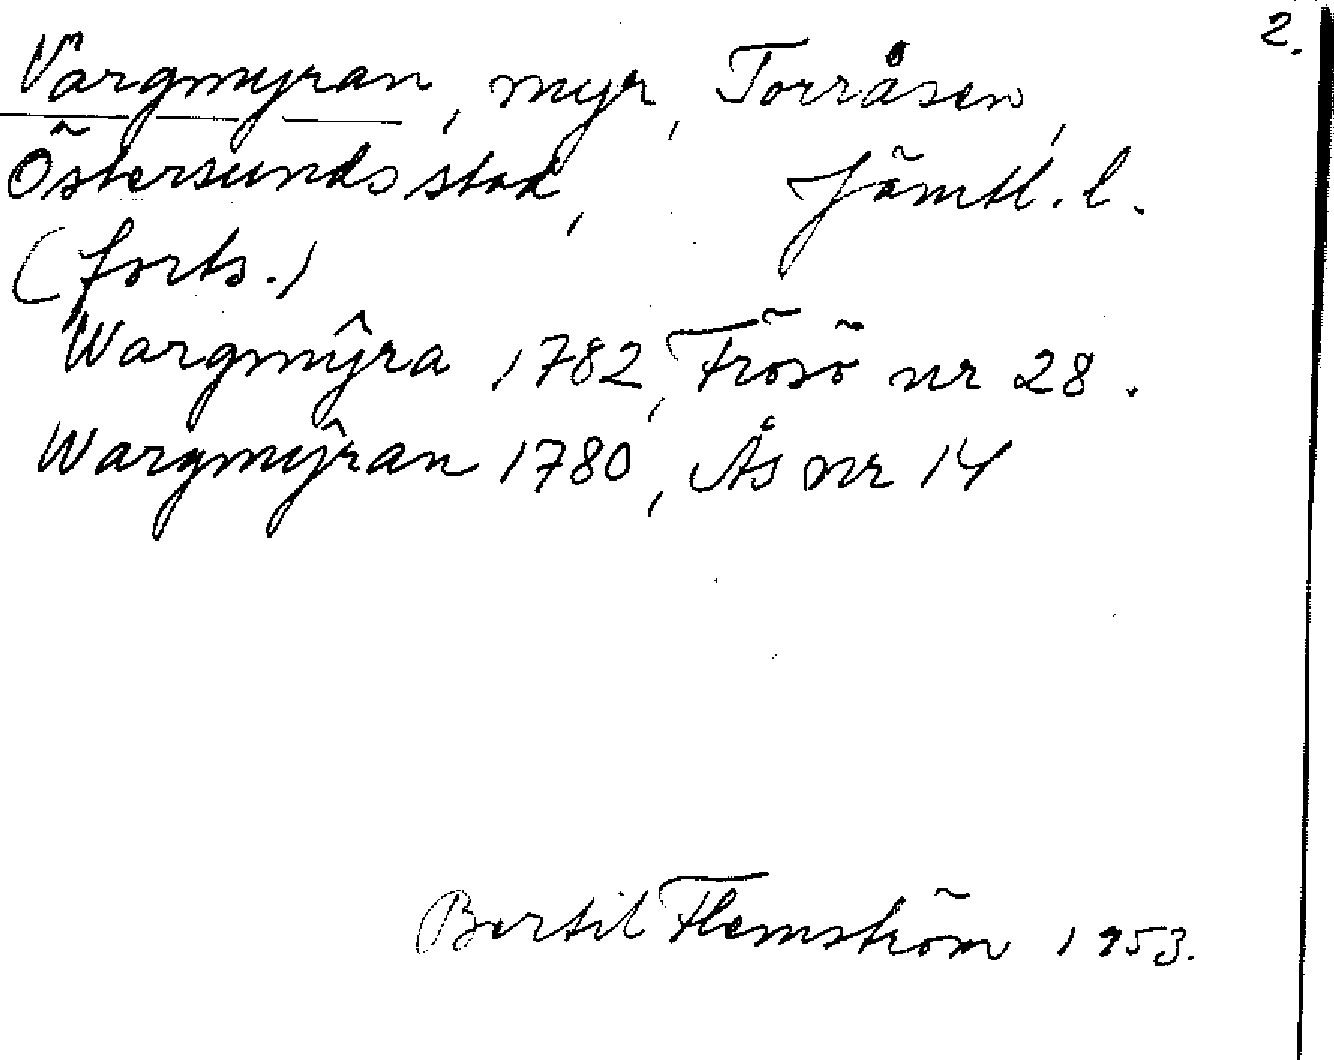 2.
Vargmyran, myr, Torråsen,
Östersunds stad, Jämtl. l.
(forts.)
Wargmŷra 1782, Frösö nr 28.
Wargmŷran 1780, Ås nr 14
Bertil Flemström 1953.